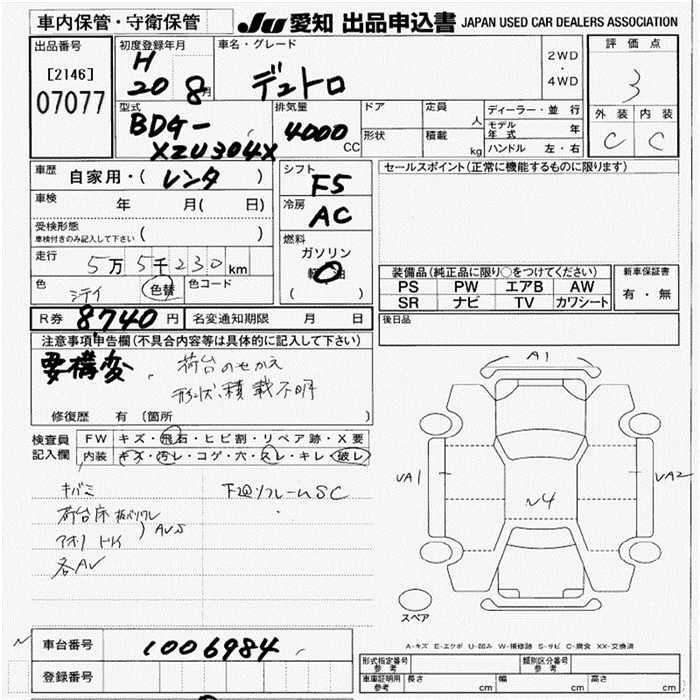 車内保管・守衛保管
JU 愛知 出品申込書 JAPAN USED CAR DEALERS ASSOCIATION
出品番号
[2146]
07077
初度登録年月
H
20 8月
車名・グレード
デュトロ
2WD
・
4WD
評価点
3
外装 内装
C C
型式
BDG-
XZU304X
排気量
4000 CC
ドア
定員
人
形状
積載
kg
ディーラー・並 行
モデル年式 年
ハンドル 左・右
車歴
自家用・( レンタ )
車検
年 月( 日)
受検形態
車検付きのみ記入して下さい ( )
走行
5万5千230km
色
シテイ
色替
色コード
シフト
F5
冷房
AC
燃料
ガソリン
軽油
( )
セールスポイント(正常に機能するものに限ります)
装備品(純正品に限り○をつけてください)
PS PW エアB AW
SR ナビ TV カワシート
新車保証書
有・無
後日品
R券 8,740 円
名変通知期限 月 日
注意事項申告欄(不具合内容等は具体的に記入して下さい)
要構変. 荷台のせかえ
形状、積載不明
修復歴 有(箇所 )
検査員
記入欄
FW キズ・飛石・ヒビ割・リペア跡・X要
内装 キズ・汚レ・コゲ・穴・スレ・キレ・破レ
キバミ
荷台床
AVS
各AV
下廻りフレームSC
A1
UA1
UA2
スペア
A-キズ E-エクボ U-凹み W-補修跡 S-サビ C-腐食 XX-交換済
車台番号 1006984
登録番号
形式指定番号
参考
類別区分番号
参考
車庫証明用
参考
長さ cm
幅 cm
高さ cm